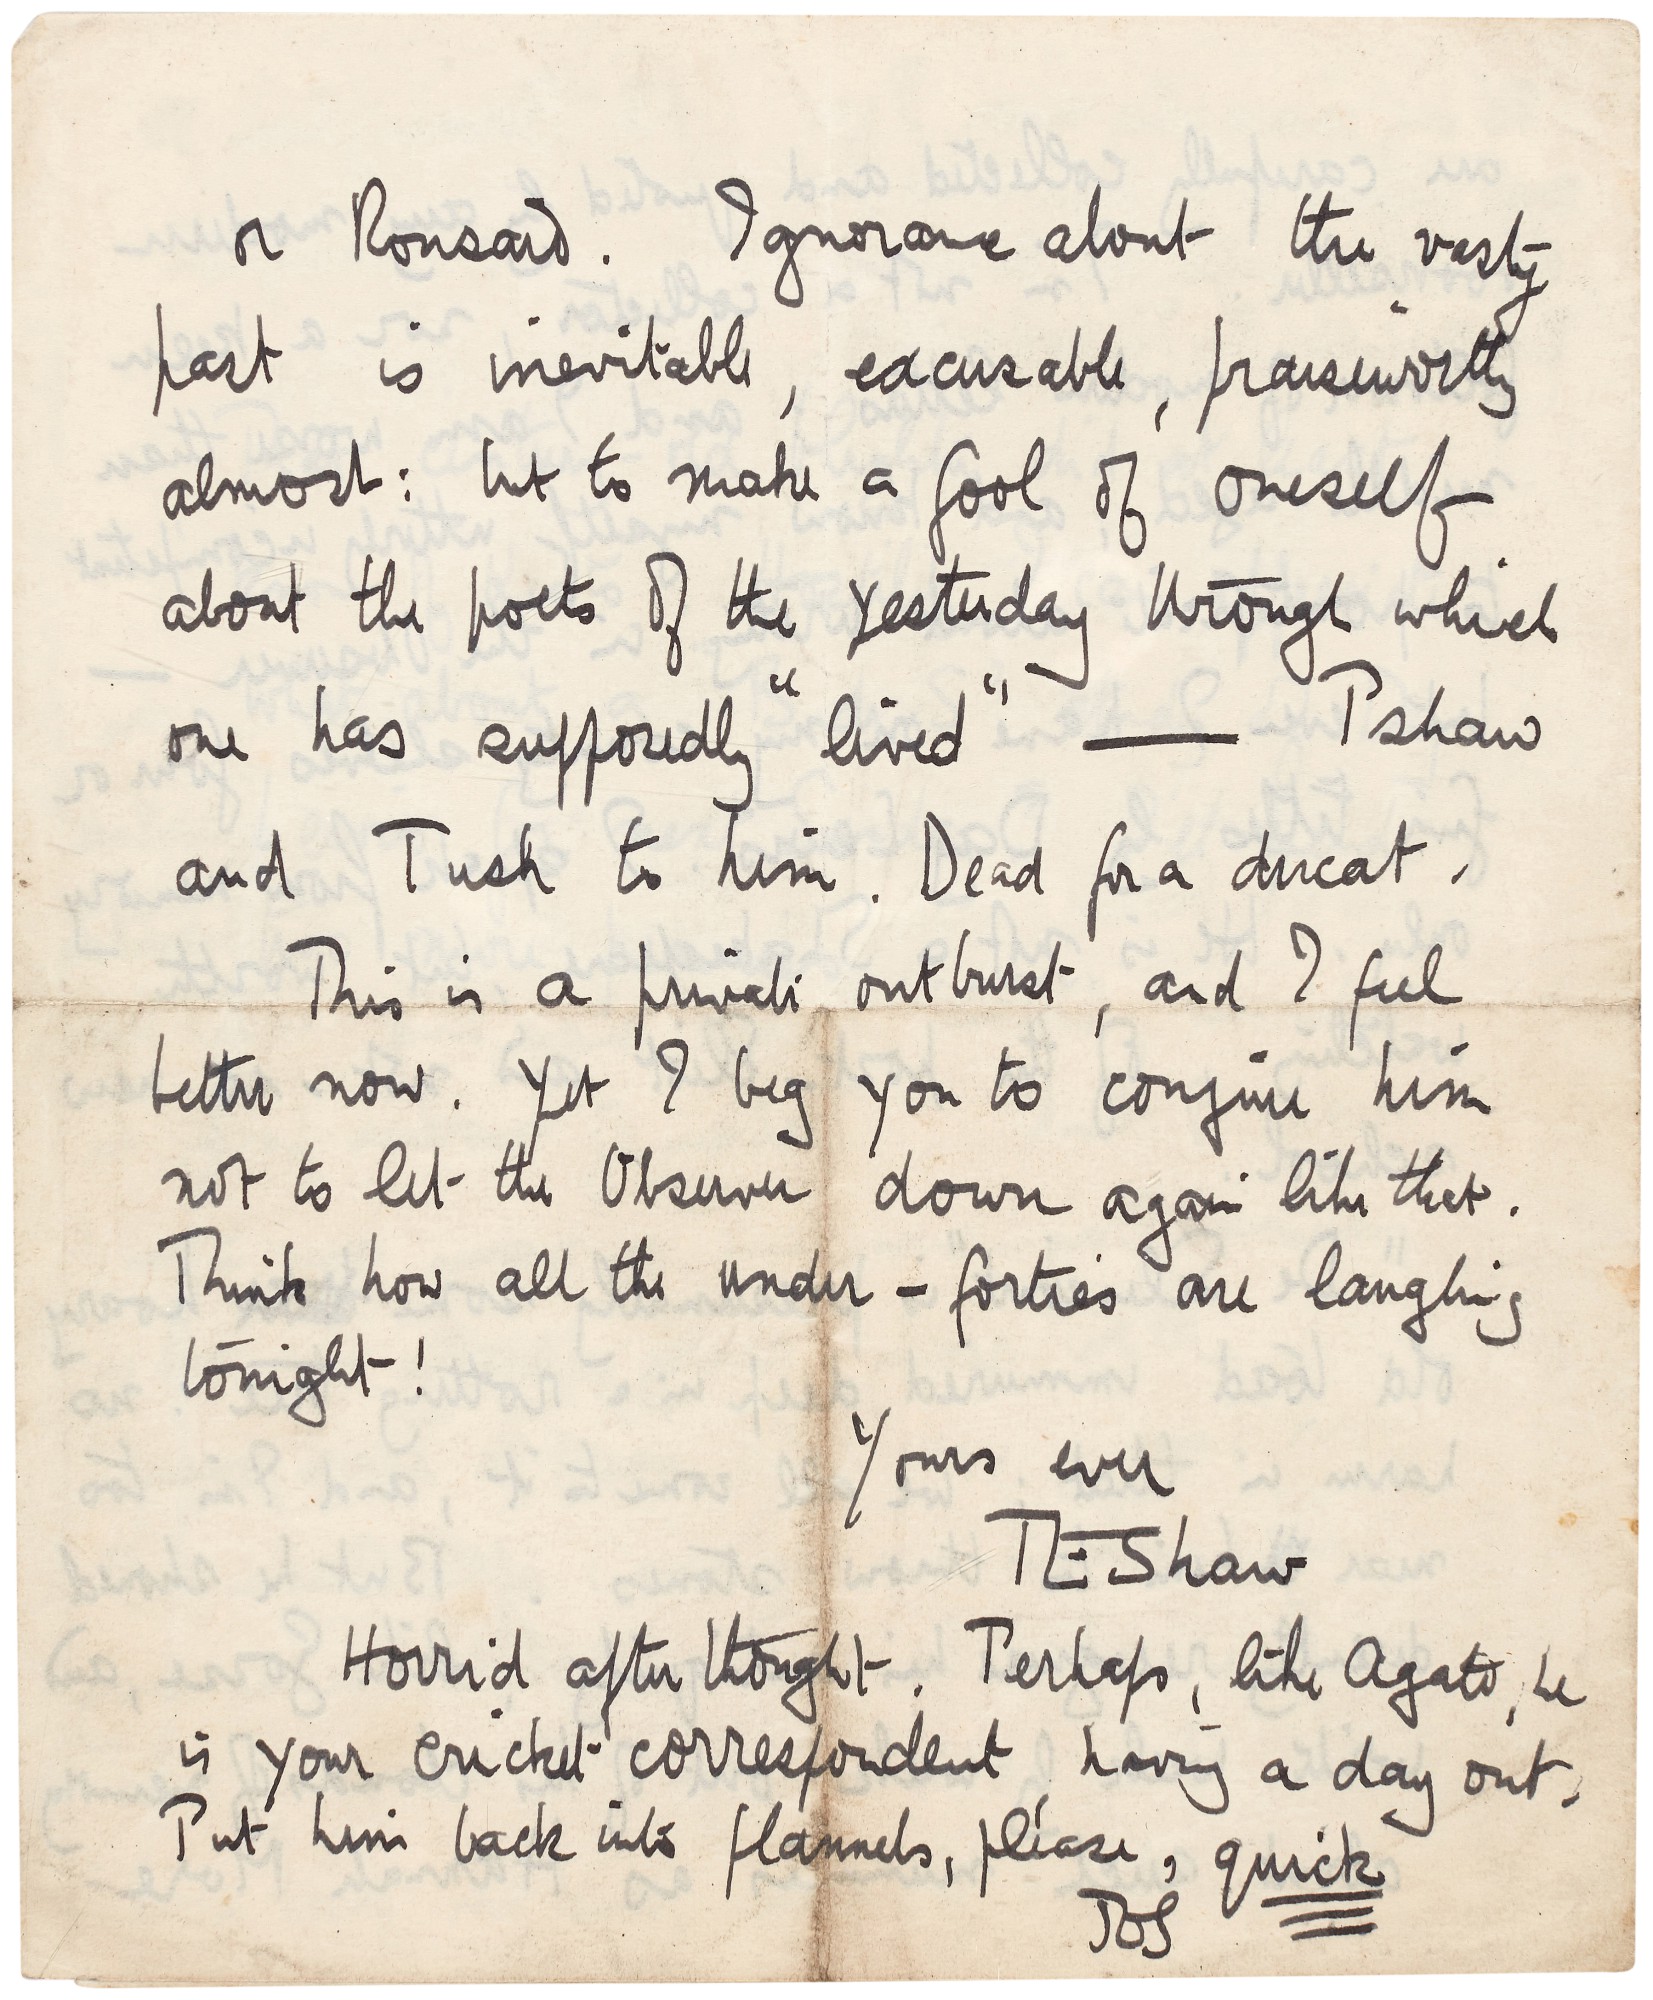 or Ronsard. Ignorance about the vasty
past is inevitable, excusable, praiseworthy
almost: but to make a fool of oneself
about the poets of the yesterday through which
one has supposedly "lived" — Pshaw
and Tush to him. Dead for a ducat.
This is a private outburst, and I feel
better now. Yet I beg you to conjure him
not to let the Observer down again like that.
Think how all the under-forties are laughing
tonight!
Yours ever
TEShaw
Horrid afterthought. Perhaps, like Agate, he
is your cricket correspondent, having a day out.
Put him back into flannels, please, quick
TES